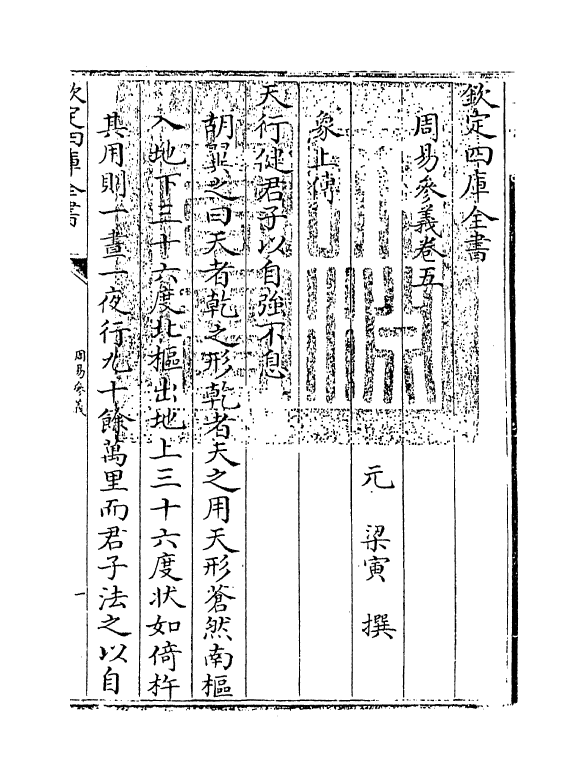 欽定四庫全書
周易參義卷五
元 梁寅 撰
象上傳
天行健君子以自強不息
胡翼之曰天者乾之形乾者天之用天形蒼然南樞
入地下三十六度北樞出地上三十六度狀如倚杵
其用則一晝一夜行九十餘萬里而君子法之以自
欽定四庫全書
周易參義
一